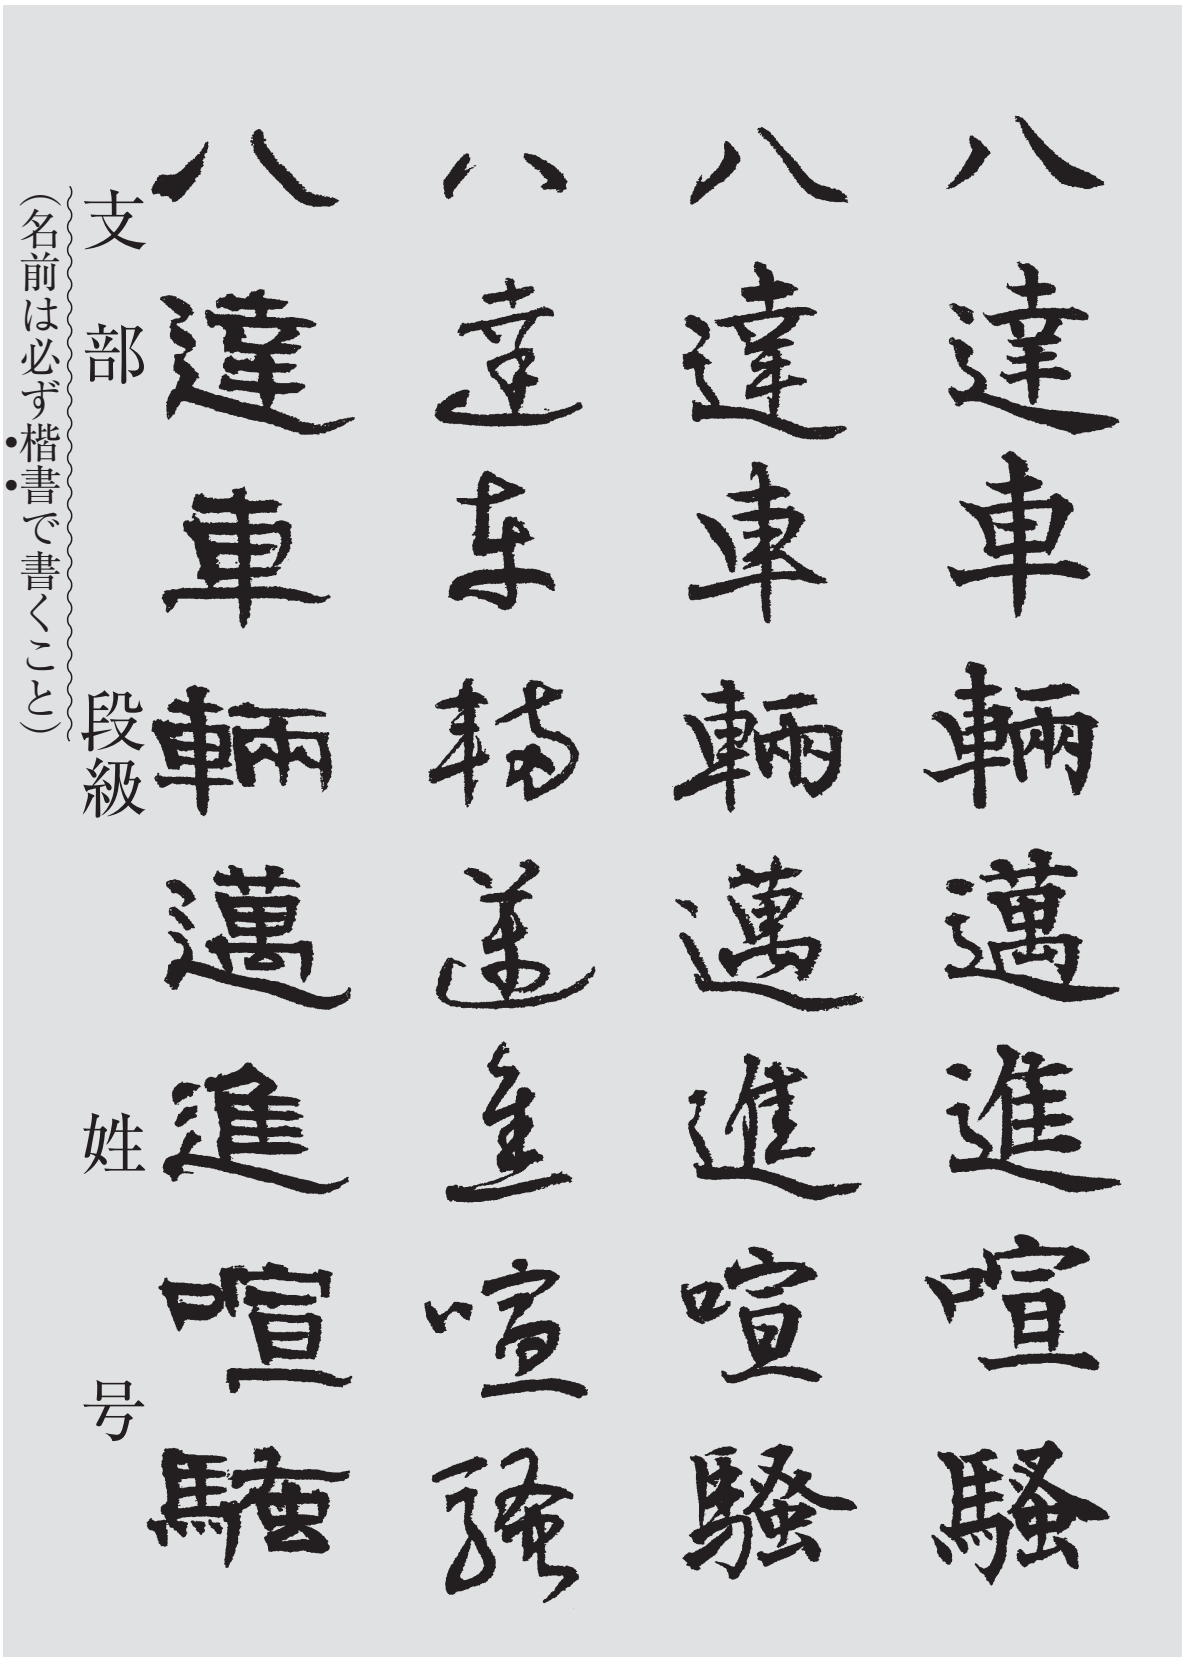 八達車輛邁進喧騒
八達車輛邁進喧騒
八達車輛邁進喧騒
八達車輛邁進喧騒
支部 段級 姓 号
(名前は必ず楷書で書くこと)